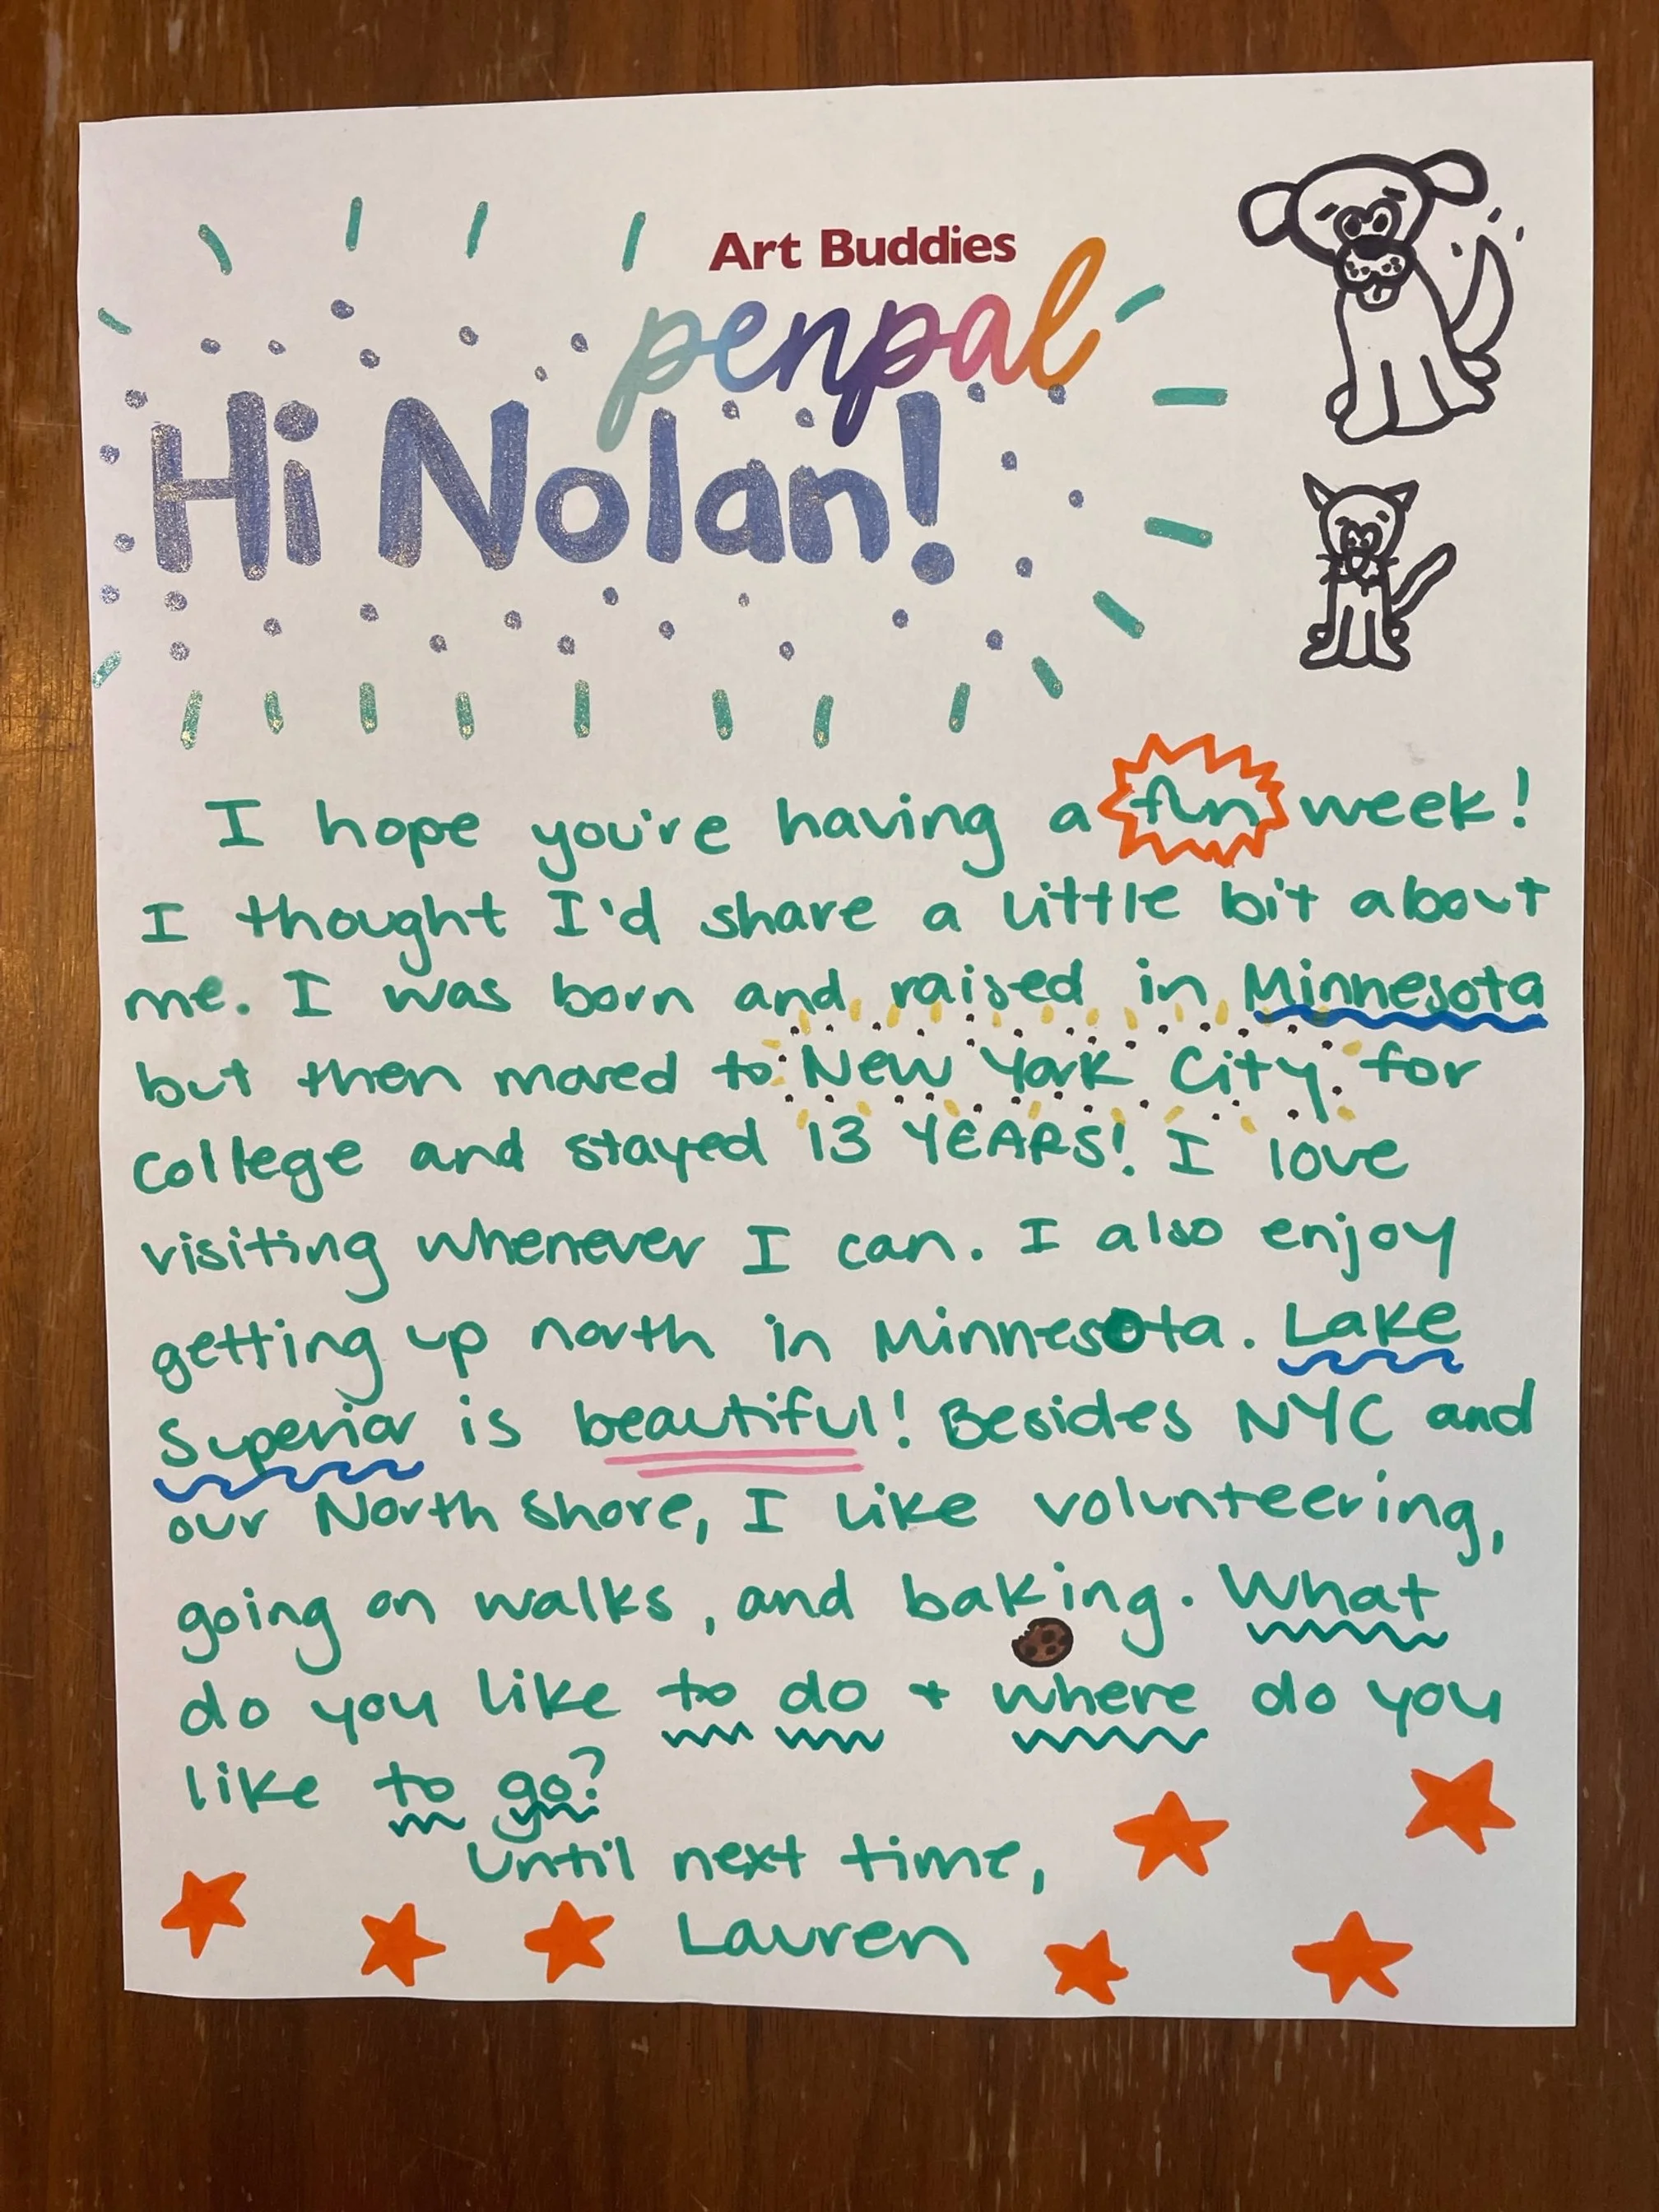 Art Buddies
penpal
Hi Nolan!
I hope you're having a fun week!
I thought I'd share a little bit about
me. I was born and raised in Minnesota
but then moved to New York City for
college and stayed 13 YEARS! I love
visiting whenever I can. I also enjoy
getting up north in Minnesota. Lake
Superior is beautiful! Besides NYC and
our North Shore, I like volunteering,
going on walks, and baking. What
do you like to do + where do you
like to go?
Until next time,
Lauren